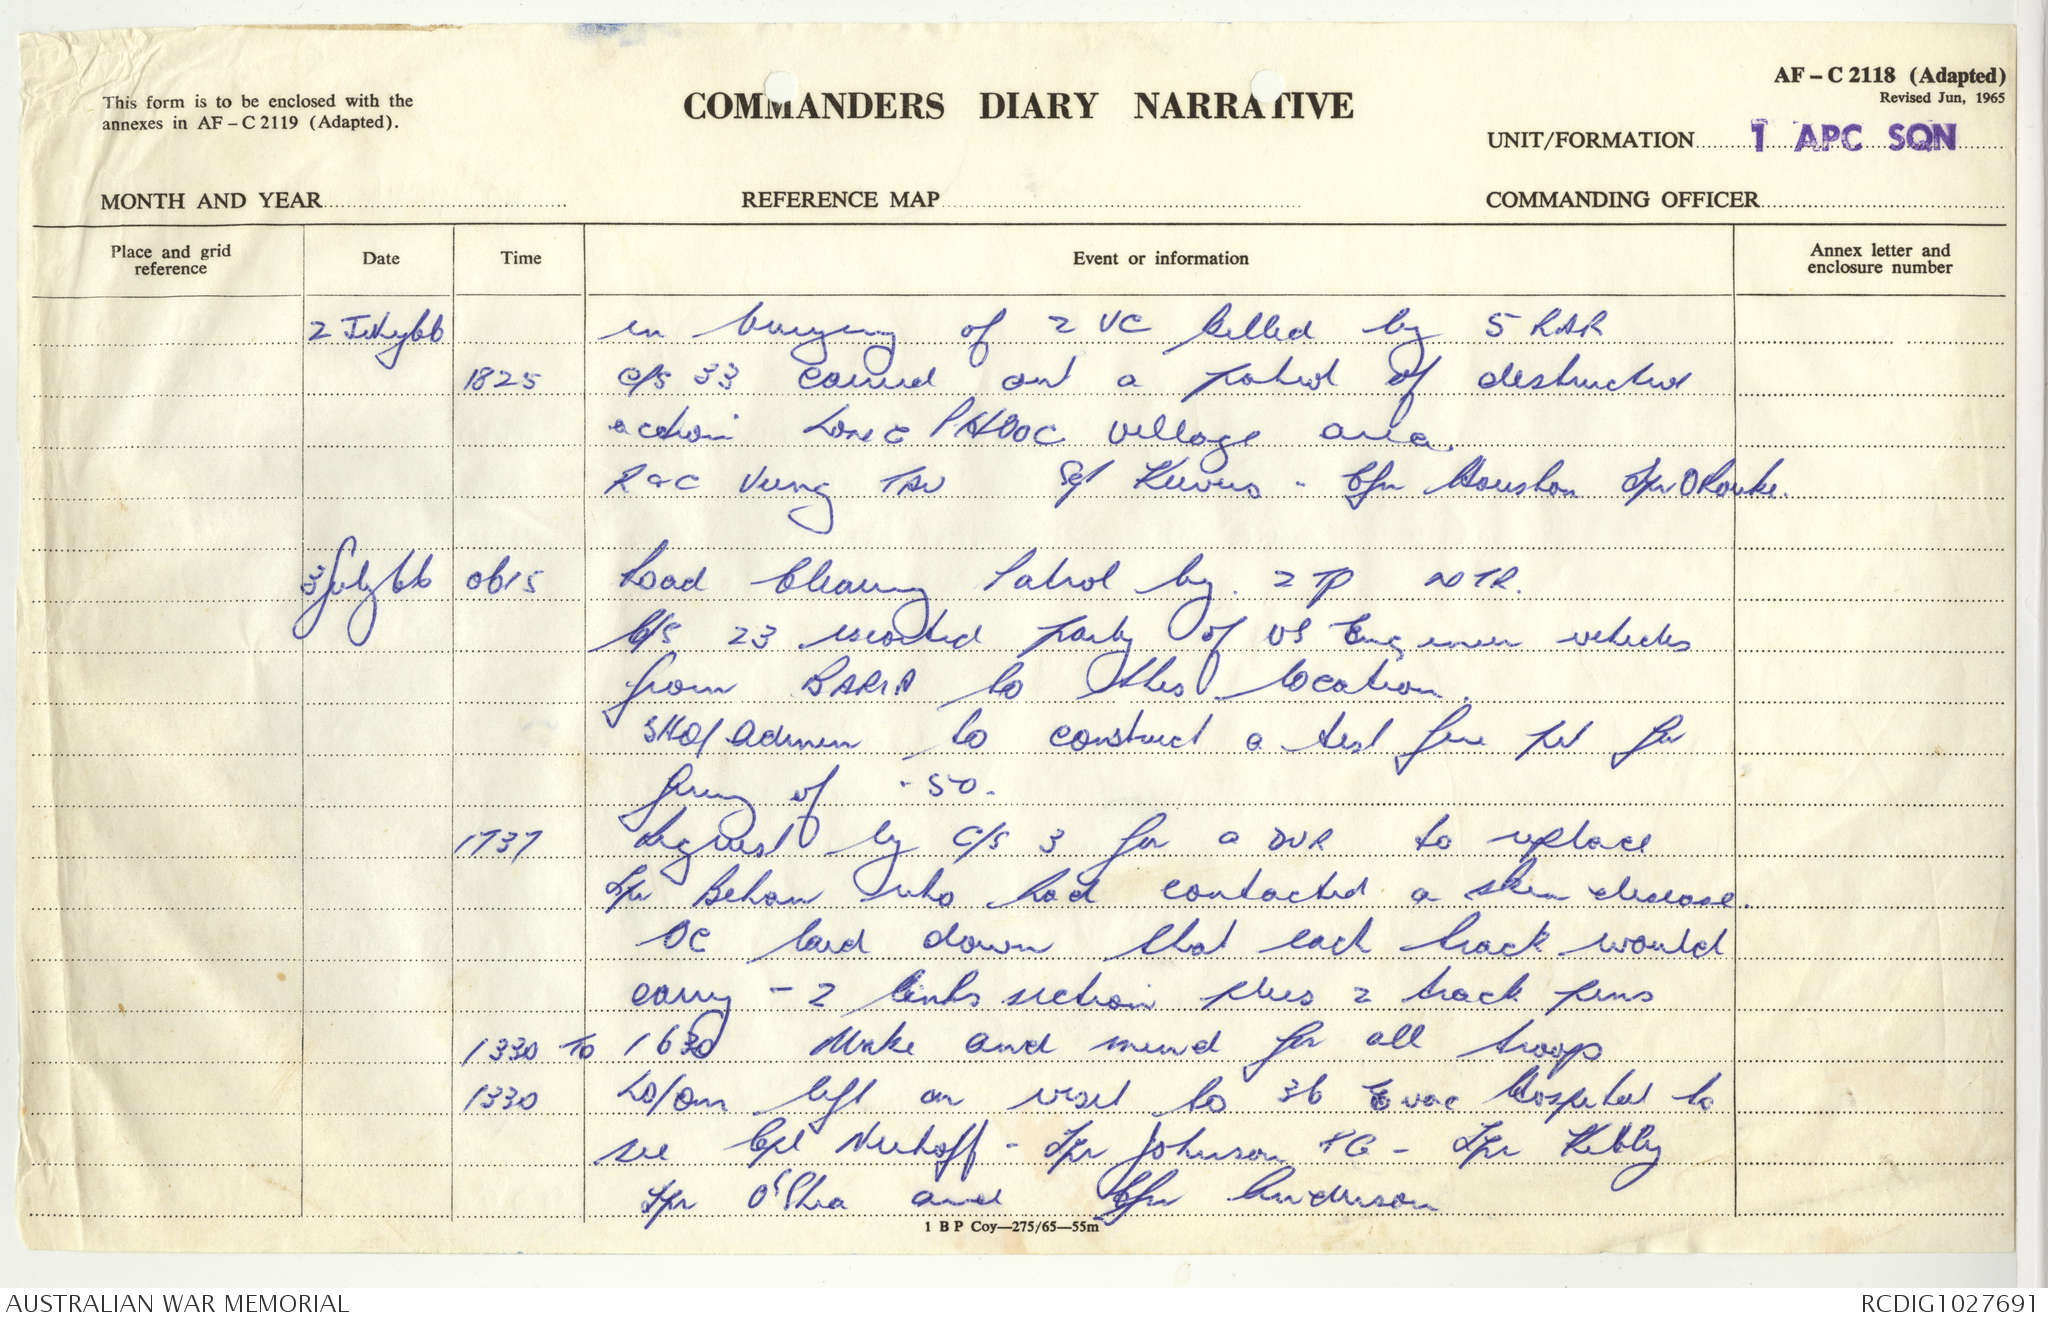 AF – C 2118 (Adapted)
Revised Jun, 1965
This form is to be enclosed with the
annexes in AF – C 2119 (Adapted).
COMMANDERS DIARY NARRATIVE
UNIT/FORMATION 1 APC SQN
MONTH AND YEAR
REFERENCE MAP
COMMANDING OFFICER
Place and grid reference
Date
Time
Event or information
Annex letter and enclosure number
2 July 66 in burying of 2 VC killed by 5 RAR
1825 C/S 33 carried out a patrol of destructed
action LONG PHUOC village area.
R & C Vung TAU Sgt - Cfn Houston Tpr O'Rourke.
3 July 66 0615 Road Clearing Patrol by 2 TP NTR.
C/S 23 escorted party of US Engineer vehicles
from BARIA to this location.
SHQ/Admin to construct a test fire pit for
firing of .50.
1737 Request by C/S 3 for a DVR to replace
Tpr Behan who had contacted a skin disease.
OC laid down that each track would
carry - 2 links section plus 2 track pins
1330 To 1630 Make and mend for all troops
1330 LO/ left on visit to 36 Evac Hospital to
see Cpl Niehoff - Tpr Johnson - Tpr Kibby
Tpr O'Shea and Cfn Anderson
1 B P Coy—275/65—55m
AUSTRALIAN WAR MEMORIAL
RCDIG1027691